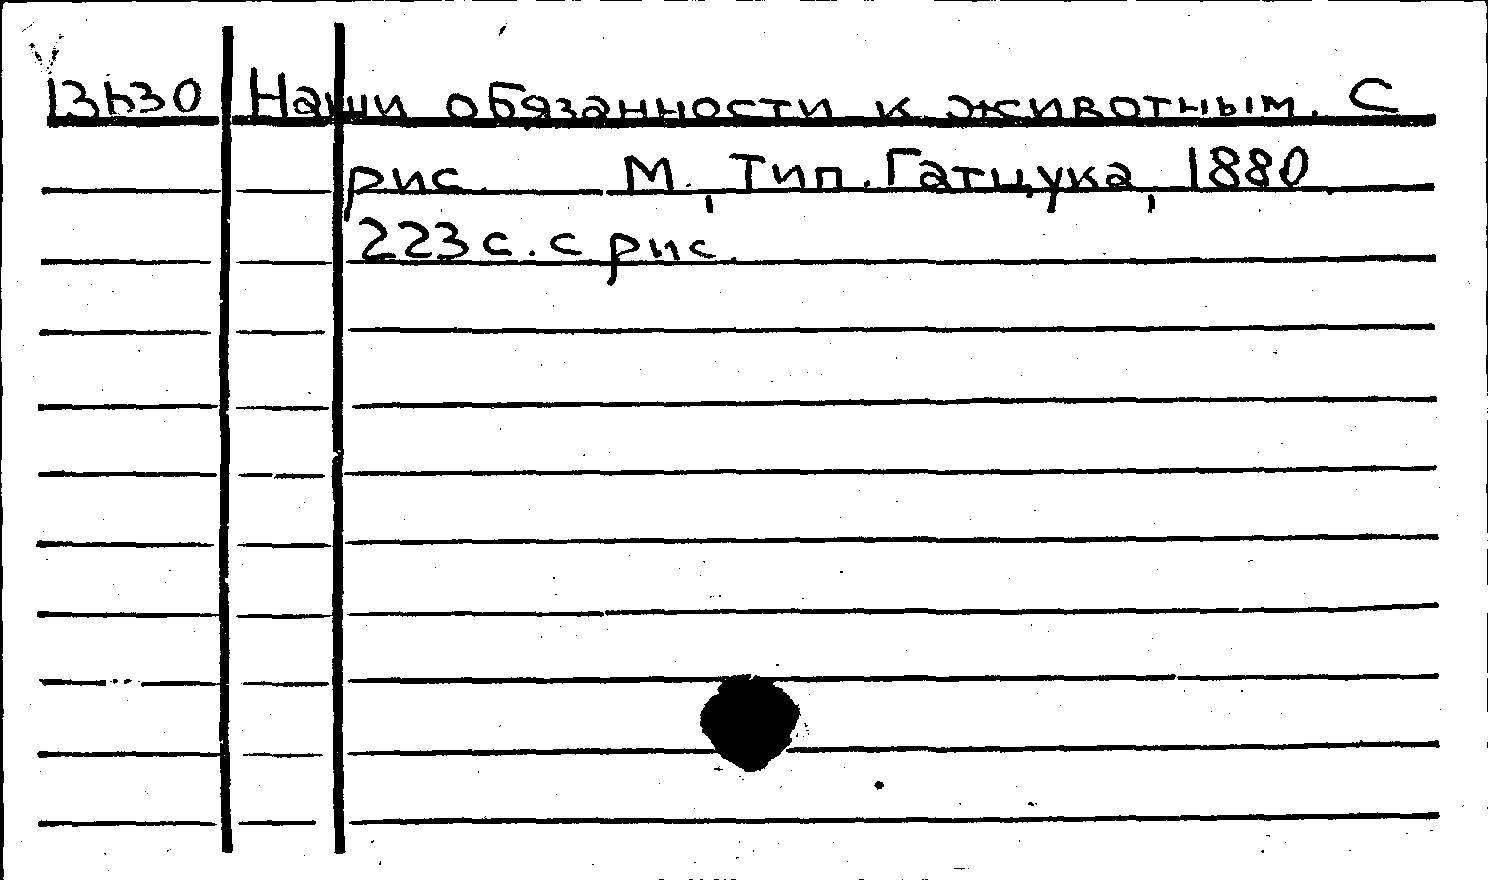 13h30 Наши обязанности к животным. С
рис. М., Тип. Гатцука, 1880.
223 с. с рис.